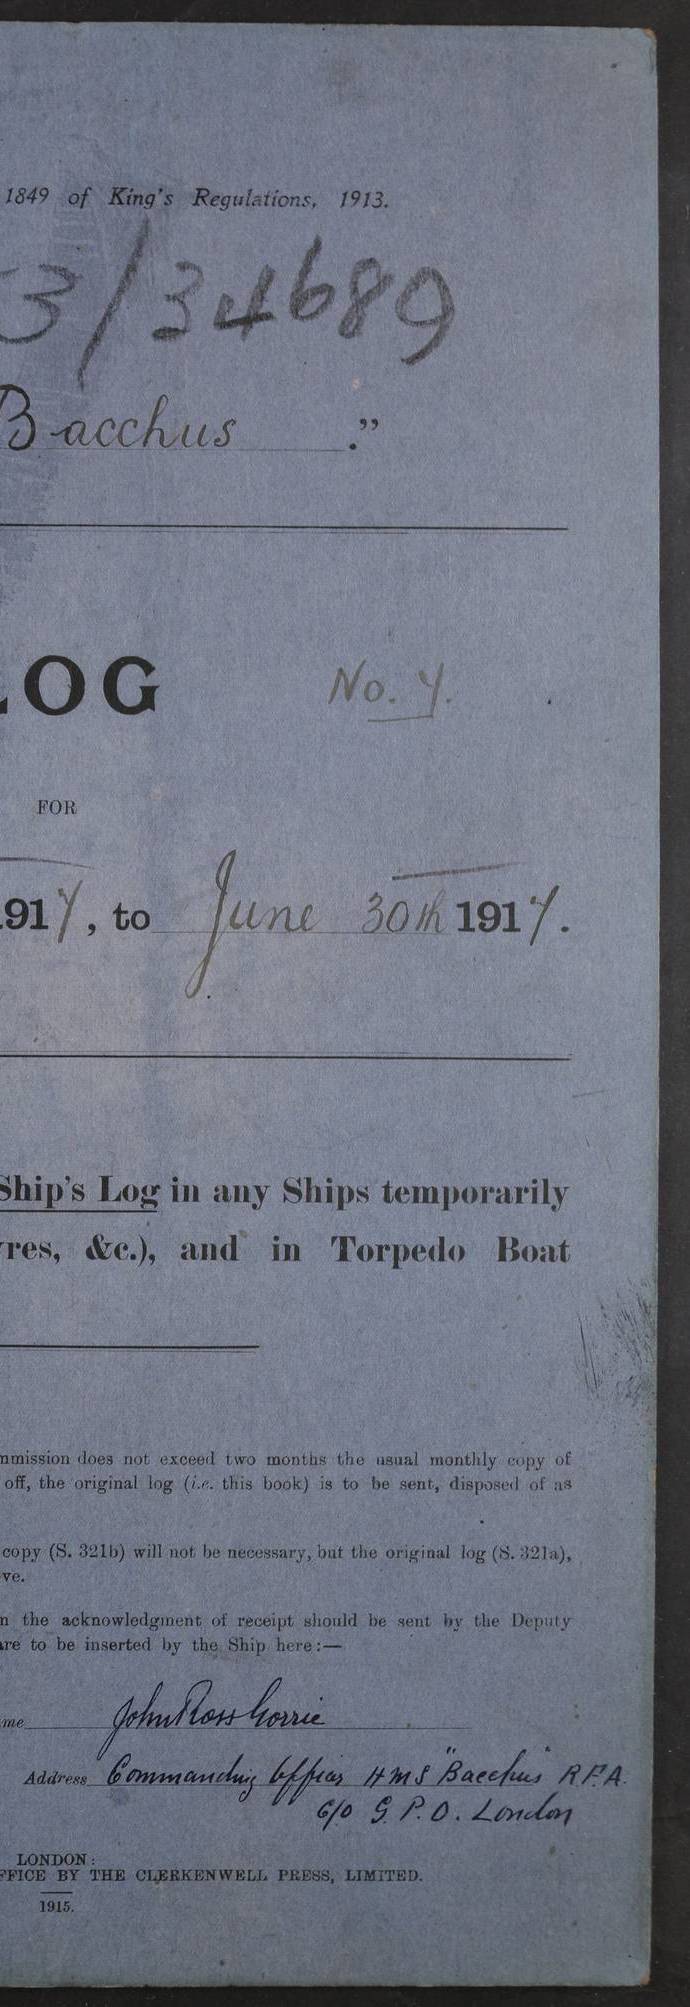 1849 of King's Regulations, 1913.
53/34689
Bacchus ."
LOG
No. 7.
FOR
1917, to June 30th 1917.
Ship's Log in any Ships temporarily
&c.), and in Torpedo Boat
does not exceed two months the usual monthly copy of
off, the original log (i.e. this book) is to be sent, disposed of as
copy (S. 321b) will not be necessary, but the original log (S. 321a),
the acknowledgment of receipt should be sent by the Deputy
are to be inserted by the Ship here:—
John Ross Gorrie
Address Commanding Officer HMS "Bacchus" R.F.A.
c/o G.P.O. London
LONDON:
OFFICE BY THE CLERKENWELL PRESS, LIMITED.
1915.